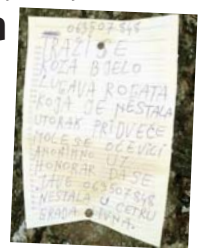 063507848
TRAŽI SE
KOZA BJELO
ŽUGAVA ROGATA
KOJA JE NESTALA
UTORAK PRIDVEČE
MOLE SE OČEVICI
ANONIMNO UZ
HONORAR DA SE
JAVE 063507848
NESTALA U CETRU
GRADA